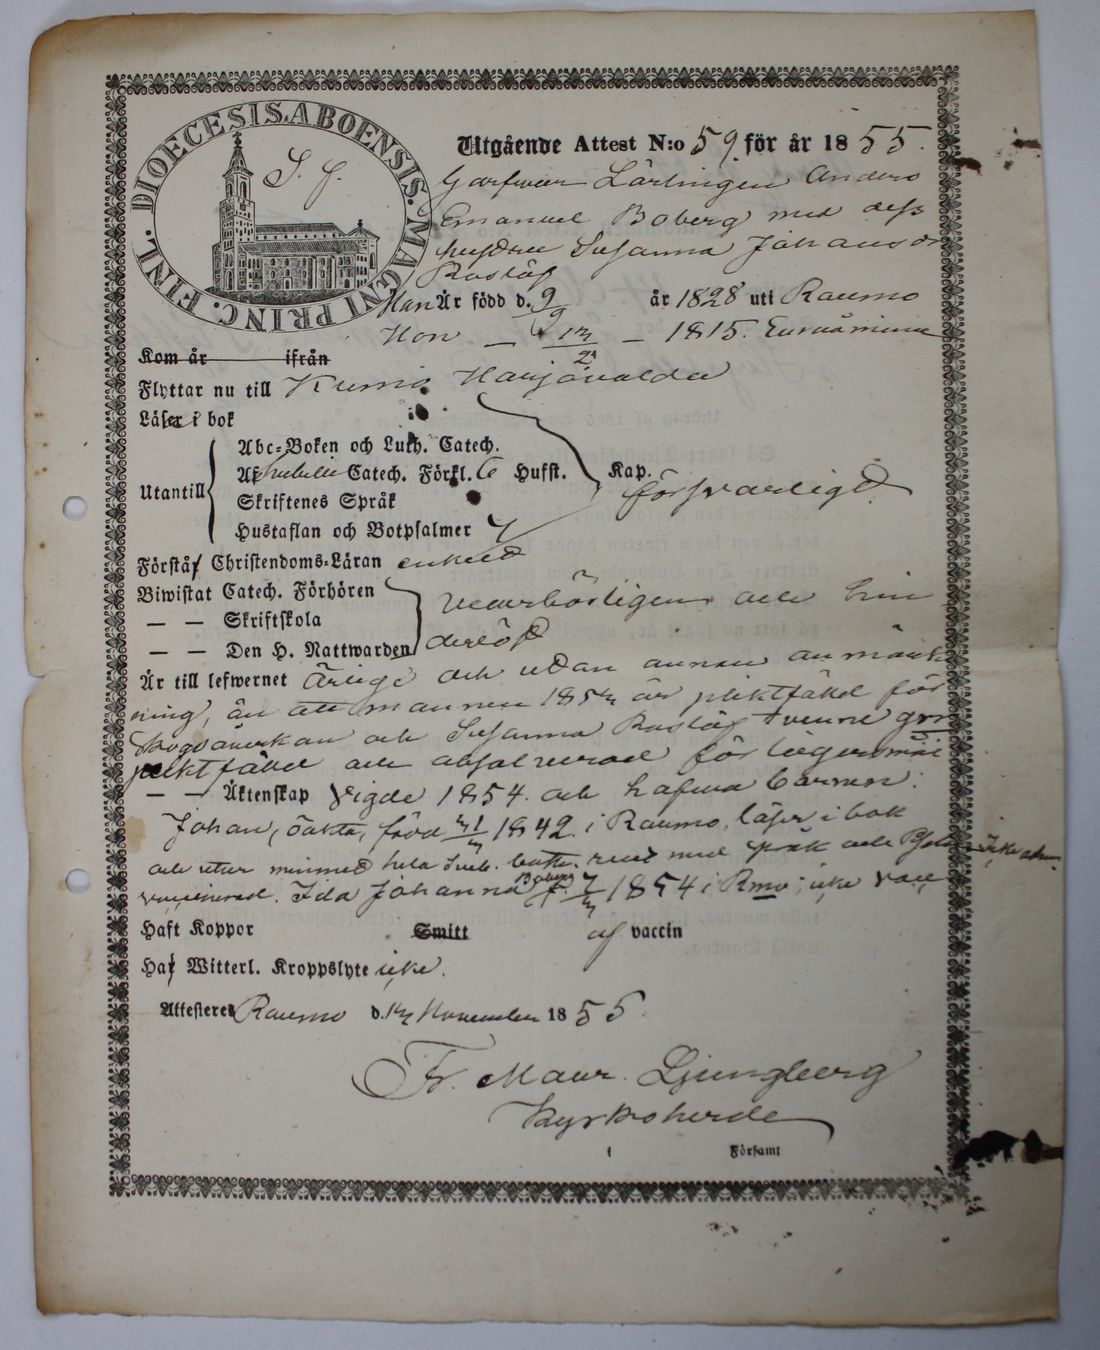 DIOECESIS.ABOENSIS.MAGNI PRINC. FINL.
S. f.
Utgående Attest N:o 59. för år 1855.
Garfware Lärlingen Anders
Emanuel Boberg med dess
hustru Susanna Johansdr
Rostöf
Han Är född d. 9/9 år 1828 uti Raumo
Hon — — 1815. Euraåminne
Kom år ifrån
Flyttar nu till Kumo Harjavalda
Läser i bok
Abc-Boken och Luth. Catech.
Utantill
Catech. Förkl. Hufst. Kap.
försvarligt
Skriftenes Språk
Hustaflan och Botpsalmer
Förstår Christendoms-Läran enkelt
Biwistat Catech. Förhören
— — Skriftskola
— — Den H. Nattwarden
vederbörligen och hin
derlöst
Är till lefwernet Ärlige och utan annan anmärk
ning, än att mannen 185 är pliktfäld för
och Susanna Rostöf tvenne gr
pliktfäld och absolverad för lägersmål
— — Äktenskap Vigde 1854. och hafwa barnen:
Johan, oäkta, född 1842. i Raumo, läser i bok
och utur minnet hela
vaccinerad. Ida Johanna Boberg f. 1854 i Rmo; icke vacc
Haft Koppor Smitt af vaccin
Har Witterl. Kroppslyte icke.
Attesteres Raumo d. November 1855.
Fr. Maur. Ljungberg
Kyrkoherde
i Församl